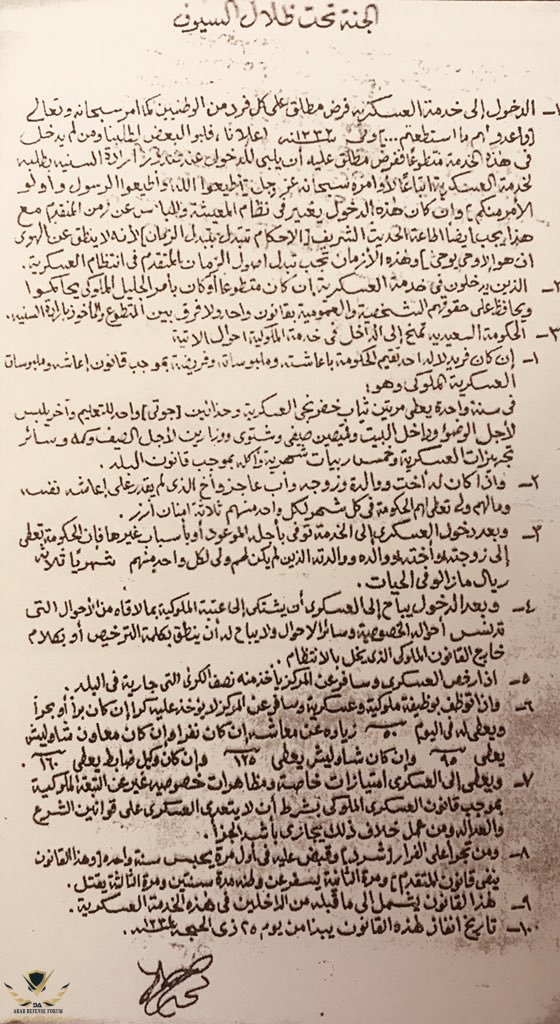 الجنة تحت ظلال السيوف
١- الدخول إلى خدمة العسكرية فرض مطلق على كل فرد من الوطنيين كما امر سبحانه وتعالى
[واعدوا لهم ما استطعتم...] وفي ١٣٣٢هـ اعلانا، فلبوا البعض لطلبنا ومن لم يدخل
في هذه الخدمة متطوعا ففرض مطلق عليه أن يلبى للدخول عند ارادة السنيه بطلبه
لخدمة العسكرية اتباعًا لأوامره سبحانه عز وجل [اطيعوا الله واطيعوا الرسول وأولو
الأمر منكم] وان كان هذه الدخول يغير في نظام المعيشة واللباس عن زمن المتقدم مع
هذا يجب ايضا اطاعة الحديث الشريف [الاحكام تتبدل بتبدل الزمان] لأنه لا ينطق عن الهوى
ان هو إلا وحي يوحى] وهذه الأزمان تجب تبدل اصول الزمان المتقدم في انتظام العسكرية.
٢- الذين يدخلون في خدمة العسكرية ان كان متطوعا أو كان بأمر الجليل الملوكي يحاكموا
ويحافظ على حقوقهم الشخصية والعمومية بقانون واحد ولا فرق بين المتطوع والمأخوذ بارادة السنيه.
٣- الحكومة السعيدية تمنح إلى الداخل في خدمة الملوكية احوال الاتية
١- إن كان فريد لا له احد تقيم الحكومة باعاشته وملبوساته وفريضته بموجب قانون إعاشه وملبوسات
العسكرية الملوكي وهو:
في سنة واحدة يعطى مرتين ثياب خفرنجي العسكرية وحذائين [جوتي] واحد للتعليم وآخر يلبس
لأجل الوضوء وداخل البيت وقميصين صيفي وشتوى ووزارين لاجل الصيف وكمه وسائر
تجهيزات العسكرية وخمس ربيات شهرية وأكله بموجب قانون البلد.
٢- واذا كان له اخت ووالدة وزوجه وأب عاجز وأخ الذى لم يقدر على إعاشه نفسه
ومالهم ولي تعطى لهم الحكومة في كل شهر لكل واحد منهم ثلاثة امنان أرز.
٣- وبعد دخول العسكرى إلى الخدمة توفي بأجله الموعود أو بأسباب غيرها فإن الحكومة تعطى
إلى زوجته وأخته ووالده ووالدته الذين لم يكن لهم ولى لكل واحد منهم شهريًا ثلاثة
ريال مازالو في الحيات.
٤- وبعد الدخول يباح إلى العسكرى أن يشتكى إلى عتبة الملوكية بما لاقاه من الأحوال التى
تدنس أحواله الخصوصية وسائر الاحوال ولا يباح له أن ينطق بكلمة الترخيص أو بكلام
خارج القانون الملوكى الذى يخل بالانتظام.
٥- اذا رخص العسكرى وسافر عن المركز يأخذ منه نصف الكرى التي جارية في البلد.
٦- واذا توظف بوظيفة ملوكية وعسكرية وسافر عن المركز لا يؤخذ عليه كرا إن كان برأ أو بحرأ
ويعطى له في اليوم ٥٠ زياده عن معاشه إن كان نفرا وإن كان معاون شاوليش
يعطى ٩٥ وإن كان شاوليش يعطى ١٢٥ وإن كان وكيل ضابط يعطى ١٦٠.
٧- ويعطى إلى العسكرى امتيازات خاصة ومظاهرات خصوصيه غير عن التبعة الملوكية
بموجب قانون العسكرى الملوكى بشرط أن لا يتعدى العسكرى على قوانين الشرع
والعداله ومن عمل خلاف ذلك يجازى بأشد الجزأ.
٨- ومن تجرأ على الفرار [شرد] وقبض عليه في أول مرة يحبس سنة واحده [وهذا القانون
ينفى قانون المتقدم] ومرة الثانية يسفر عن وطنه مدة سنتين ومرة الثالثة يقتل.
٩- لهذا القانون يشمل إلى ما قبله من الداخلين في هذه الخدمة العسكرية.
١٠- تاريخ انفاذ لهذه القانون يبدا من يوم ٢٥ ذى الحجة
ARAB DEFENSE FORUM